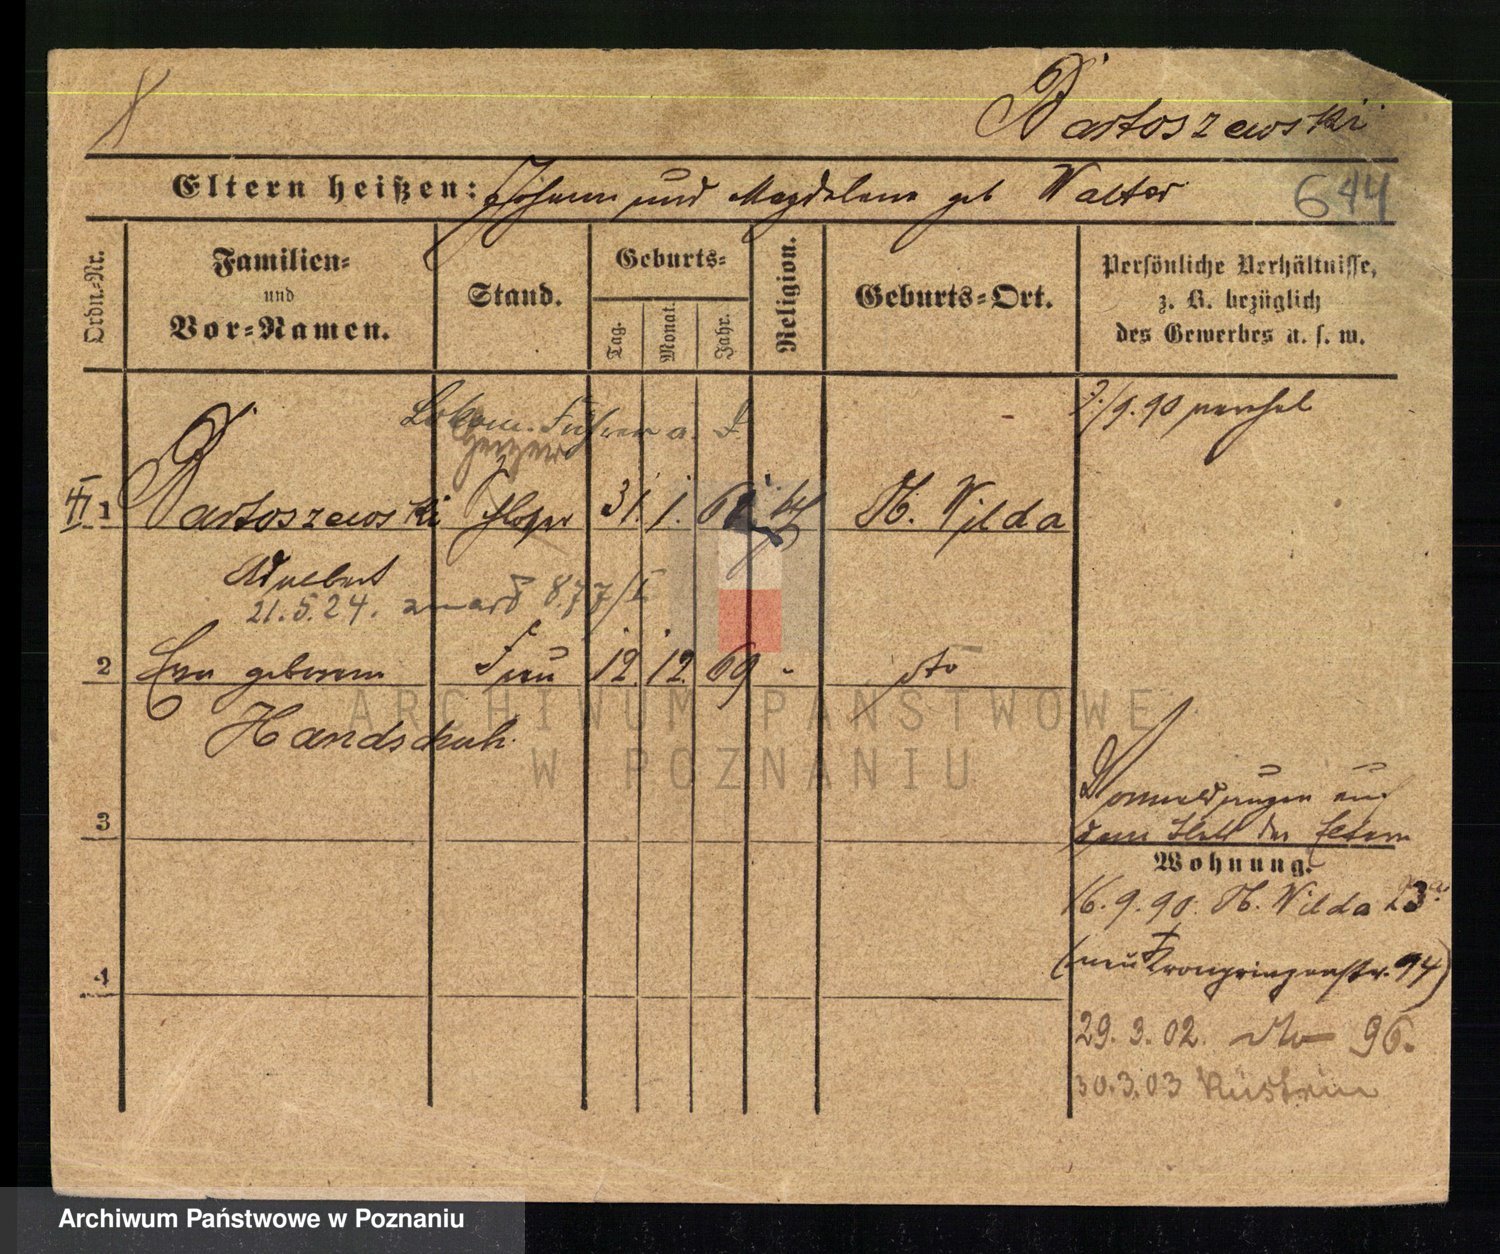 Bartoszewski
Eltern heißen: Johann und Magdalena geb Walter
644
Ordn.-Nr.
Familien-
und
Vor-Namen.
Stand.
Geburts-
Tag.
Monat.
Jahr.
Religion.
Geburts-Ort.
Persönliche Verhältnisse,
z. B. bezüglich
des Gewerbes u. s. w.
Lokom. Führer a. D.
Heizer
1 Bartoszewski 31. 1. kth St. Wilda
Adalbert
21.5.24. 877/I
2 Eva geborene Frau 12. 12. 69 dto
Handschuh.
3
4
Vormeldungen auf
dem Blatt der Eltern
Wohnung.
16. 9. 90. St. Wilda 23a
(neu Kronprinzenstr. 94)
29. 3. 02. dto 96.
30.3.03 Küstrin
ARCHIWUM PAŃSTWOWE
W POZNANIU
Archiwum Państwowe w Poznaniu